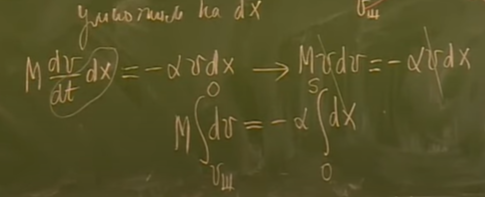 умножить на dx
v_ш
M dv/dt dx = -αvdx → Mvdv = -αvdx
M∫_{v_ш}^{0} dv = -α∫_{0}^{S} dx